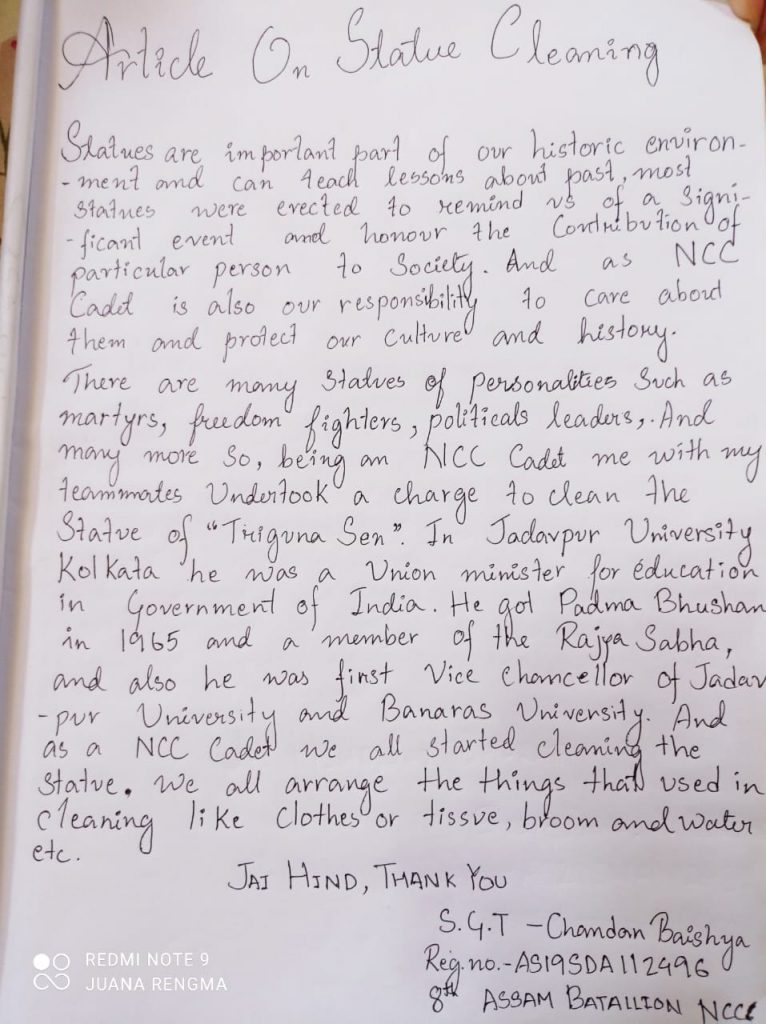 Article On Statue Cleaning
Statues are important part of our historic environ-
-ment and can teach lessons about past, most
statues were erected to remind us of a signi-
-ficant event and honour the Contribution of
particular person to Society. And as NCC
Cadet is also our responsibility to care about
them and protect our culture and history.
There are many statues of personalities such as
martyrs, freedom fighters, politicals leaders,. And
many more so, being an NCC Cadet me with my
teammates Undertook a charge to clean the
Statue of "Triguna Sen". In Jadavpur University
Kolkata he was a Union minister for education
in Government of India. He got Padma Bhushan
in 1965 and a member of the Rajya Sabha,
and also he was first Vice Chancellor of Jadav
-pur University and Banaras University. And
as a NCC Cadet we all started cleaning the
statue. We all arrange the things that used in
cleaning like clothes or tissue, broom and water
etc.
JAI HIND, THANK YOU
S.G.T - Chandan Baishya
Reg.no.-AS19SDA112496
8th ASSAM BATALLION NCC
REDMI NOTE 9
JUANA RENGMA